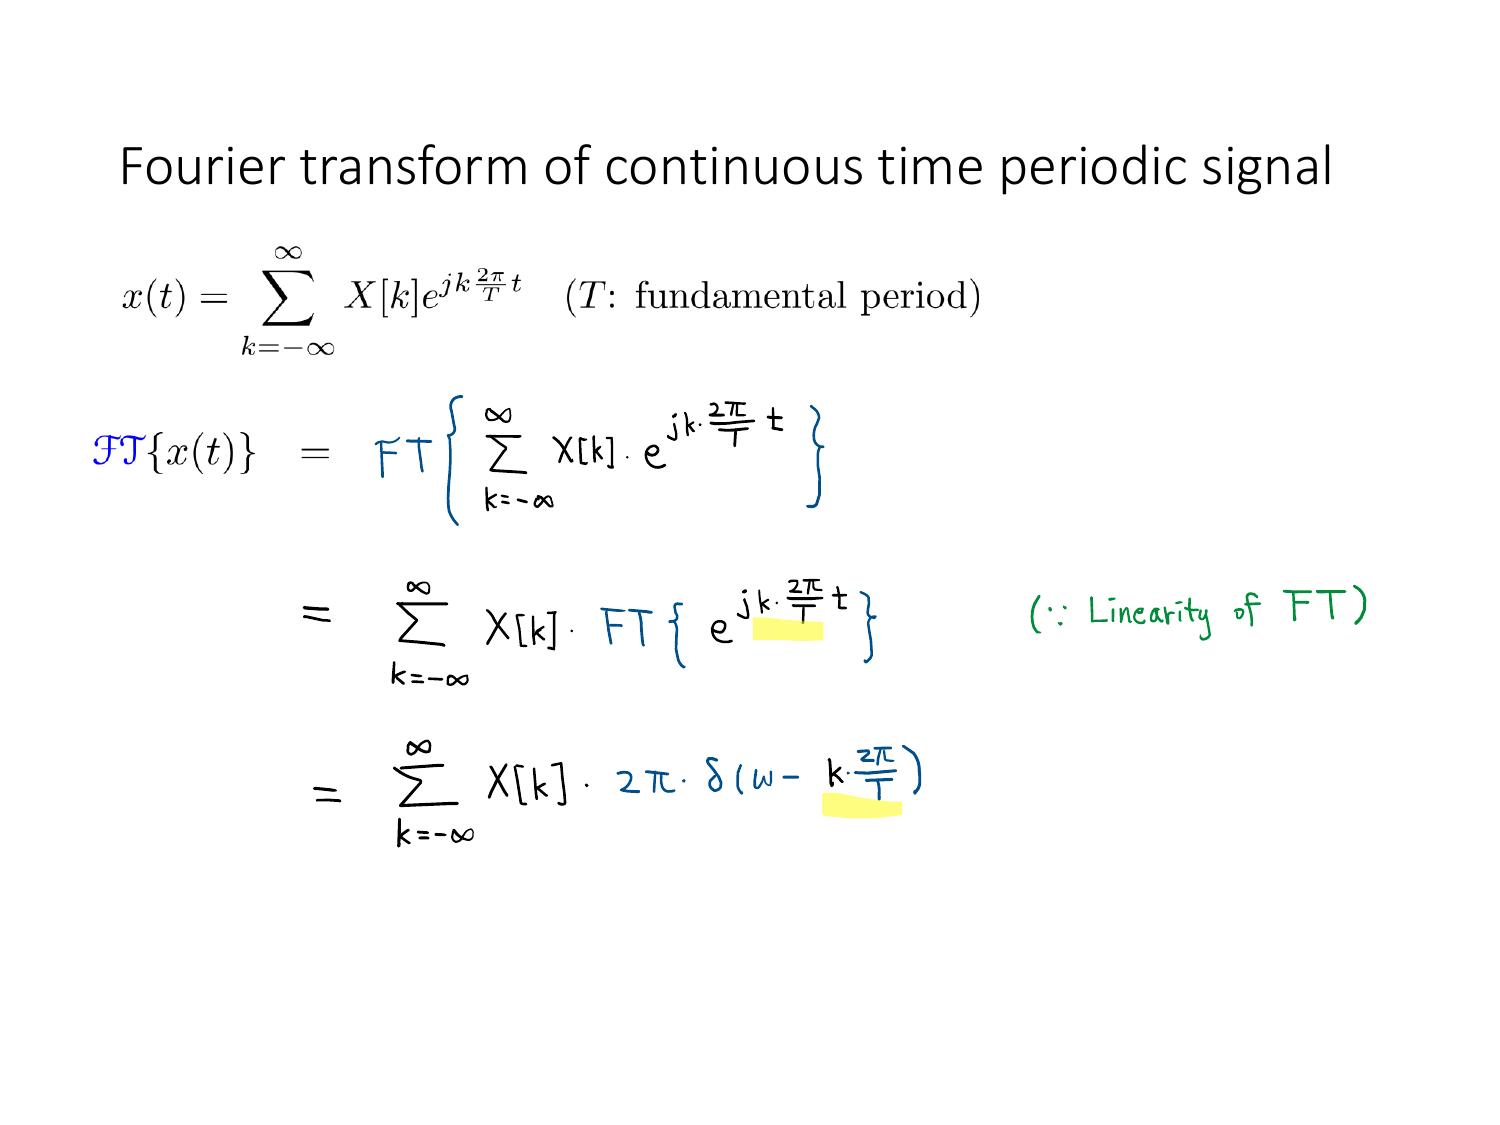 Fourier transform of continuous time periodic signal
x(t) = \sum_{k=-\infty}^{\infty} X[k]e^{jk\frac{2\pi}{T}t} (T: fundamental period)
ℱ𝒯{x(t)} = FT{ \sum_{k=-\infty}^{\infty} X[k] · e^{jk·\frac{2\pi}{T}t} }
= \sum_{k=-\infty}^{\infty} X[k] · FT{ e^{jk·\frac{2\pi}{T}t} } (∵ Linearity of FT)
= \sum_{k=-\infty}^{\infty} X[k] · 2π · δ(ω − k·\frac{2\pi}{T})